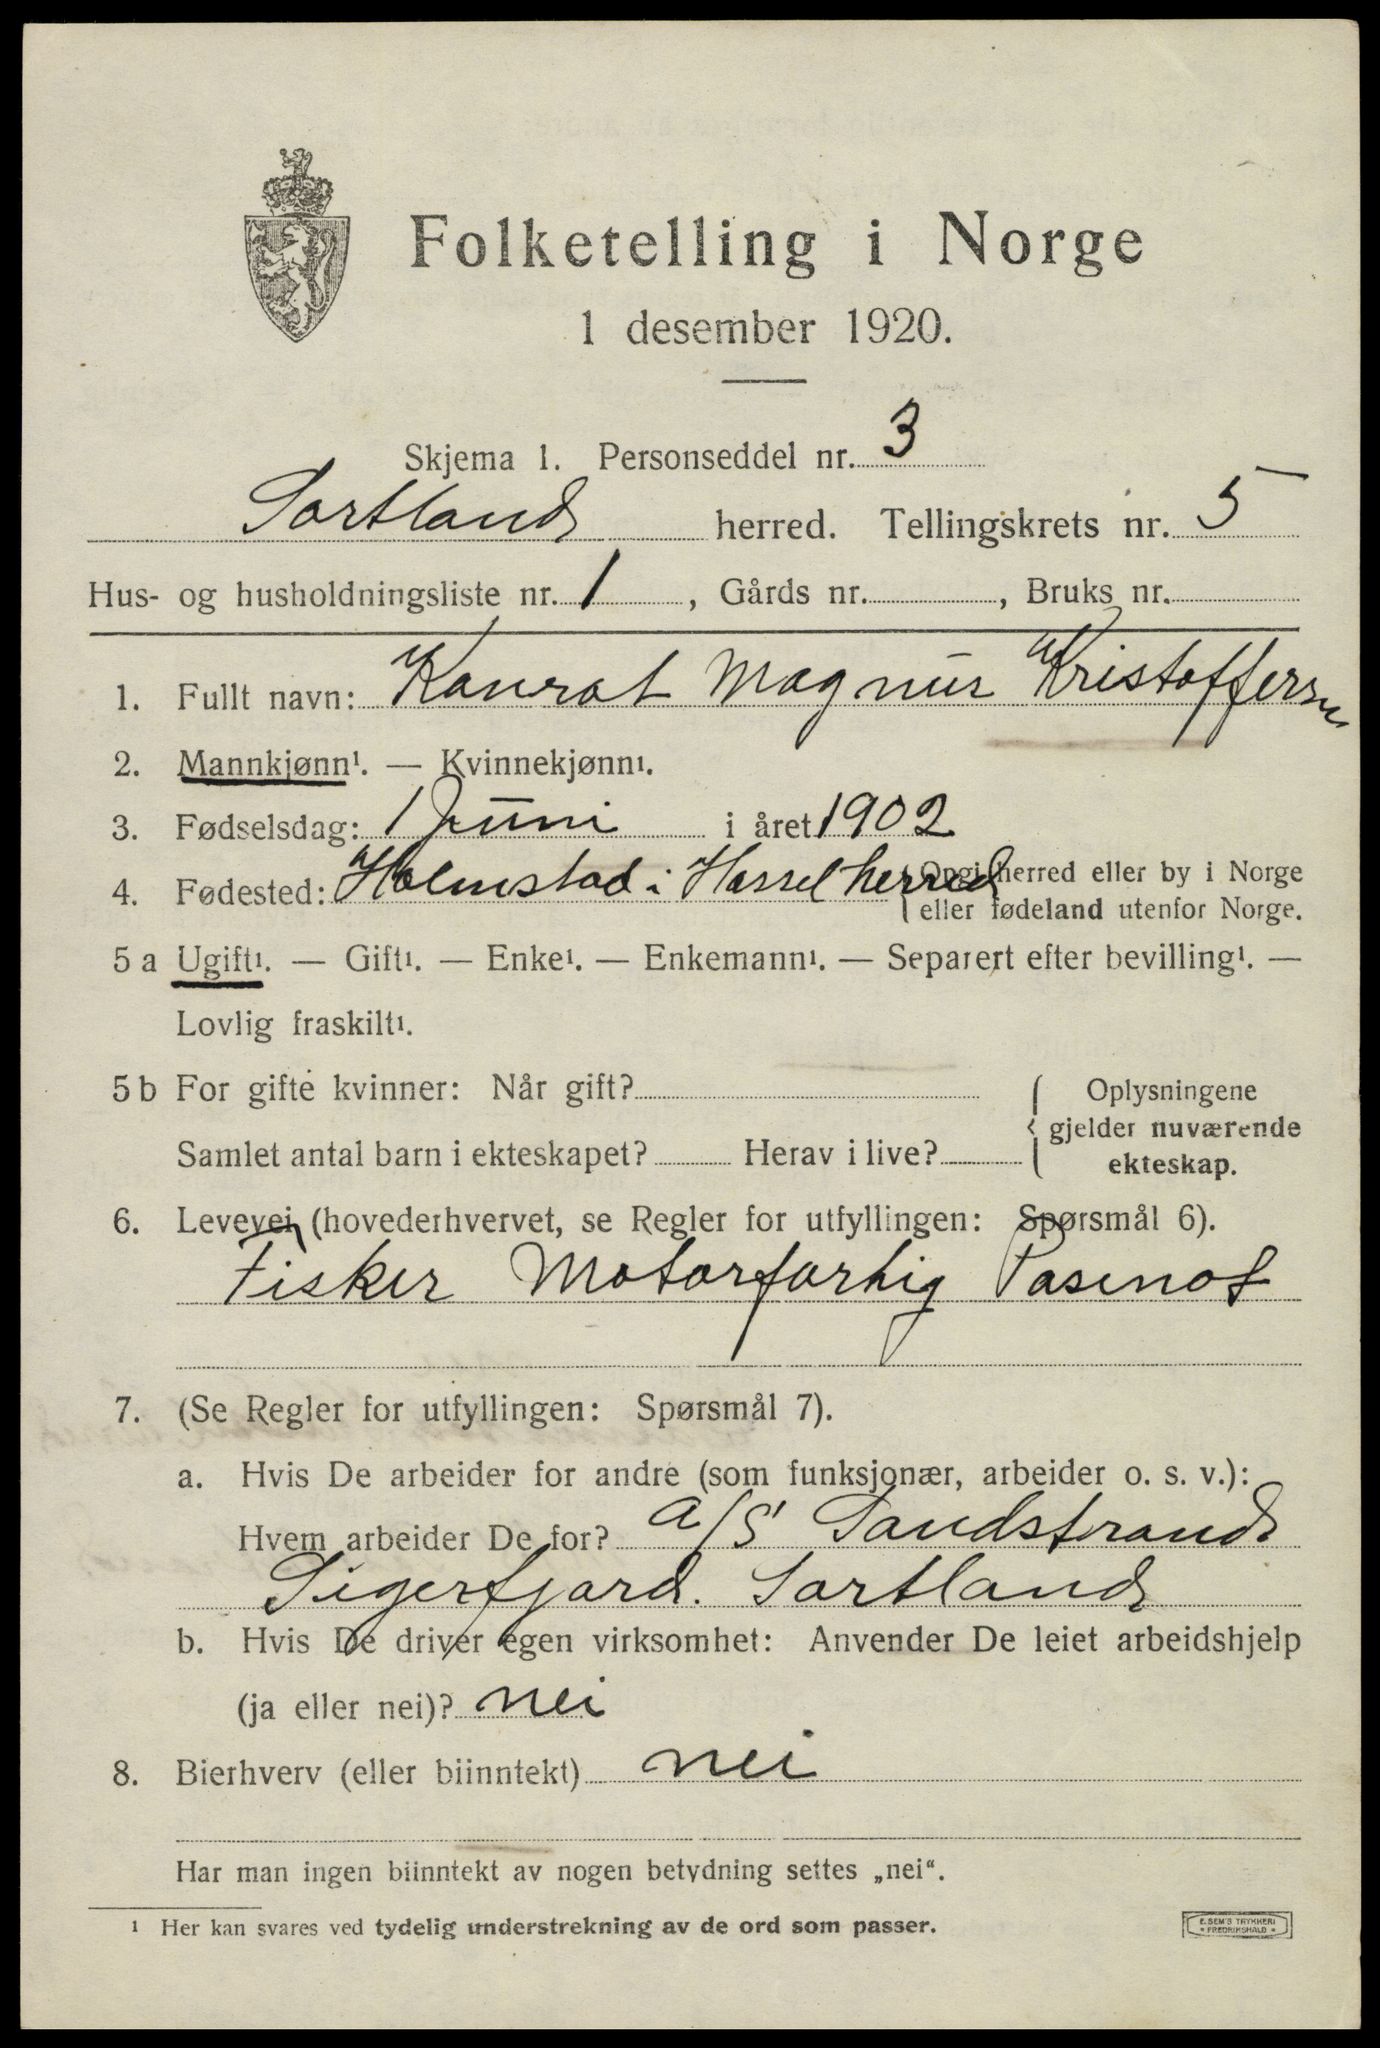 Folketelling i Norge
1 desember 1920.
Skjema 1. Personseddel nr. 3
Sortland herred. Tellingskrets nr. 5
Hus- og husholdningsliste nr. 1, Gårds nr. , Bruks nr.
1. Fullt navn: Konrat Magnus Kristoffersen
2. Mannkjønn¹. — Kvinnekjønn¹.
3. Fødselsdag: 1 Juni i året 1902
4. Fødested: Holmstad i Hassel herred { Opgi herred eller by i Norge
eller fødeland utenfor Norge.
5 a Ugift¹. — Gift¹. — Enke¹. — Enkemann¹. — Separert efter bevilling¹. —
Lovlig fraskilt¹.
5 b For gifte kvinner: Når gift? { Oplysningene
gjelder nuværende
Samlet antal barn i ekteskapet? Herav i live?
ekteskap.
6. Levevei (hovederhvervet, se Regler for utfyllingen: Spørsmål 6).
Fisker Motorfartig
7. (Se Regler for utfyllingen: Spørsmål 7).
a. Hvis De arbeider for andre (som funksjonær, arbeider o. s. v.):
Hvem arbeider De for? A/S Sandstrand
Sigerfjord. Sortland
b. Hvis De driver egen virksomhet: Anvender De leiet arbeidshjelp
(ja eller nei)? nei
8. Bierhverv (eller biinntekt) nei
Har man ingen biinntekt av nogen betydning settes „nei“.
¹ Her kan svares ved tydelig understrekning av de ord som passer.
E. SEM'S TRYKKERI
• FREDRIKSHALD •